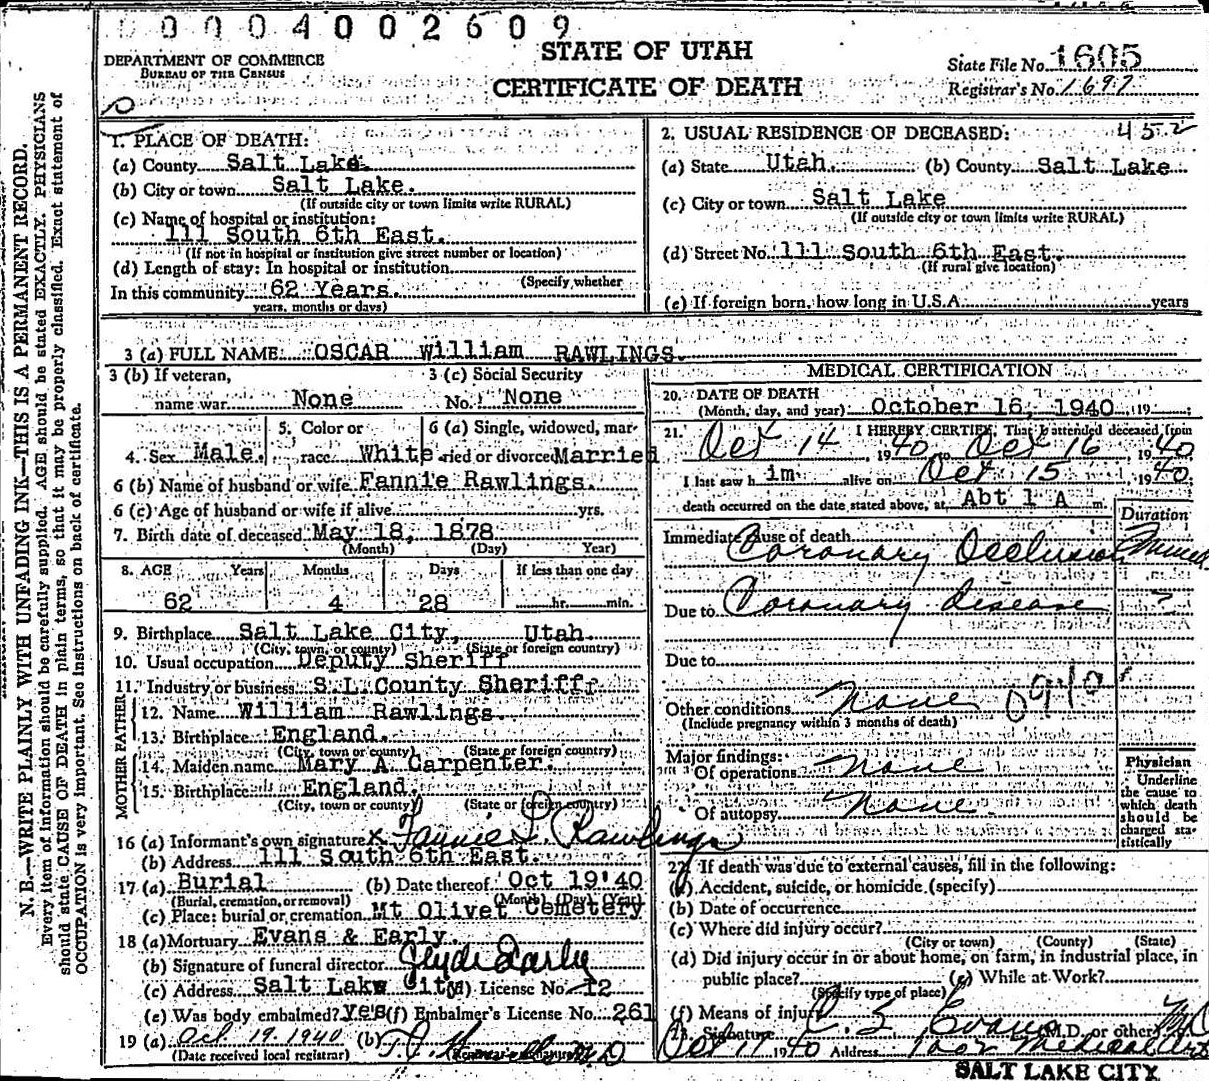 0004002609
DEPARTMENT OF COMMERCE
BUREAU OF THE CENSUS
STATE OF UTAH
CERTIFICATE OF DEATH
State File No. 1605
Registrar's No. 1697
N. B.—WRITE PLAINLY WITH UNFADING INK—THIS IS A PERMANENT RECORD.
Every item of information should be carefully supplied. AGE should be stated EXACTLY. PHYSICIANS
should state CAUSE OF DEATH in plain terms, so that it may be properly classified. Exact statement of
OCCUPATION is very important. See instructions on back of certificate.
1. PLACE OF DEATH:
(a) County Salt Lake.
(b) City or town Salt Lake.
(If outside city or town limits write RURAL)
(c) Name of hospital or institution:
111 South 6th East.
(If not in hospital or institution give street number or location)
(d) Length of stay: In hospital or institution
(Specify whether
In this community 62 Years.
years, months or days)
2. USUAL RESIDENCE OF DECEASED: 452
(a) State Utah. (b) County Salt Lake
(c) City or town Salt Lake
(If outside city or town limits write RURAL)
(d) Street No. 111 South 6th East.
(If rural give location)
(e) If foreign born, how long in U.S.A. years
3 (a) FULL NAME OSCAR William RAWLINGS.
3 (b) If veteran, 3 (c) Social Security
name war None No. None
4. Sex Male. 5. Color or race White 6 (a) Single, widowed, married or divorced Married
6 (b) Name of husband or wife Fannie Rawlings.
6 (c) Age of husband or wife if alive yrs.
7. Birth date of deceased May 18, 1878
(Month) (Day) Year)
8. AGE Years Months Days If less than one day
62 4 28 hr. min.
9. Birthplace Salt Lake City, Utah.
(City, town, or county) (State or foreign country)
10. Usual occupation Deputy Sheriff
11. Industry or business S.L. County Sheriff
FATHER
12. Name William Rawlings.
13. Birthplace England.
(City, town or county) (State or foreign country)
MOTHER
14. Maiden name Mary A Carpenter.
15. Birthplace England.
(City, town or county) (State or foreign country)
16 (a) Informant's own signature x Fannie L Rawlings
(b) Address 111 South 6th East.
17 (a) Burial (b) Date thereof Oct 19 '40
(Burial, cremation, or removal) (Month) (Day) (Year)
(c) Place: burial or cremation Mt Olivet Cemetery
18 (a) Mortuary Evans & Early.
(b) Signature of funeral director Clyde Early
(c) Address Salt Lake City (d) License No. 12
(e) Was body embalmed? Yes (f) Embalmer's License No. 261
19 (a) Oct. 19. 1940 (b)
(Date received local registrar)
MEDICAL CERTIFICATION
20. DATE OF DEATH
(Month, day, and year) October 16, 1940 19
21. I HEREBY CERTIFY, That I attended deceased from
Oct 14, 1940 to Oct 16, 1940
I last saw h im alive on Oct 15, 1940.
death occurred on the date stated above, at Abt 1 A m.
Duration
Immediate cause of death
Coronary Occlusion
Due to Coronary disease ?
Due to
Other conditions None 094 b
(Include pregnancy within 3 months of death)
Major findings:
Of operations None
Of autopsy None
Physician
Underline
the cause to
which death
should be
charged sta-
tistically
22. If death was due to external causes, fill in the following:
(a) Accident, suicide, or homicide (specify)
(b) Date of occurrence
(c) Where did injury occur?
(City or town) (County) (State)
(d) Did injury occur in or about home, on farm, in industrial place, in
public place? (e) While at Work?
(Specify type of place)
(f) Means of injury
23. Signature C. S. Evans M.D. or other MD
Oct 17 1940 Address Medical Arts
SALT LAKE CITY